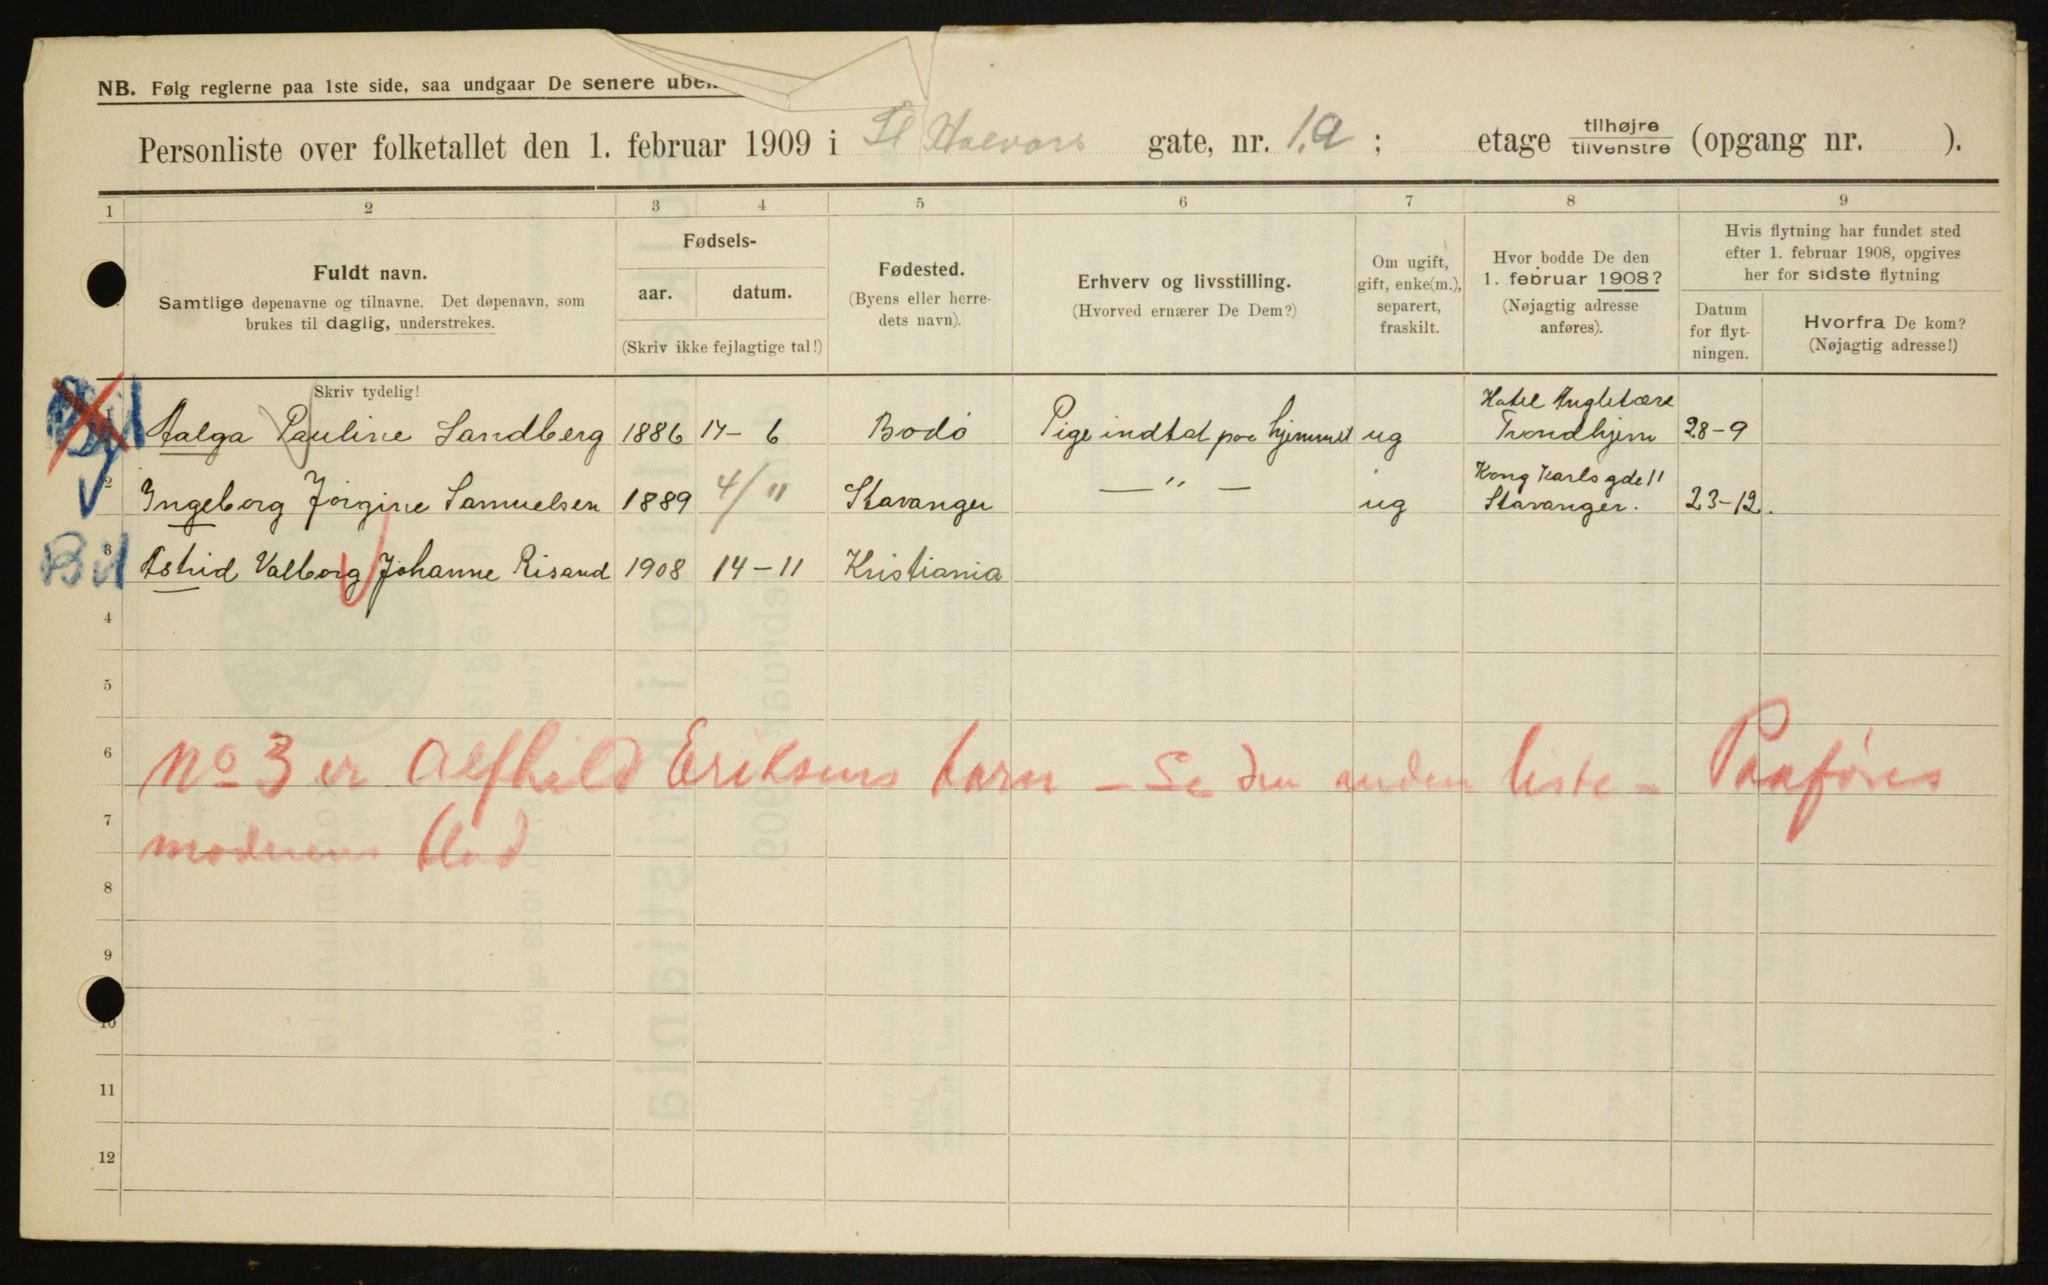 NB. Følg reglerne paa 1ste side, saa undgaar De senere
Personliste over folketallet den 1. februar 1909 i St Halvors gate, nr. 1.a ; etage tilhøjre / tilvenstre (opgang nr. ).
1 2 3 4 5 6 7 8 9
Fuldt navn.
Samtlige døpenavne og tilnavne. Det døpenavn, som
brukes til daglig, understrekes.
Fødsels-
aar. datum.
(Skriv ikke fejlagtige tal!)
Fødested.
(Byens eller herre-
dets navn).
Erhverv og livsstilling.
(Hvorved ernærer De Dem?)
Om ugift,
gift, enke(m.),
separert,
fraskilt.
Hvor bodde De den
1. februar 1908?
(Nøjagtig adresse
anføres).
Hvis flytning har fundet sted
efter 1. februar 1908, opgives
her for sidste flytning
Datum
for flyt-
ningen.
Hvorfra De kom?
(Nøjagtig adresse!)
Skriv tydelig!
Hotel Angletære
1 Aalga Pauline Sandberg 1886 17-6 Bodö Pige indtat paa hjemmet ug Trondhjem 28-9
Kong Karls gde 11
2 Ingeborg Jörgine Samuelsen 1889 4/11 Stavanger — " — ug Stavanger. 23-12.
Bil 3 Astrid Valborg Johanne Risand 1908 14-11 Kristiania
4
5
6 No 3 er Alfhild Eriksens barn - Se den anden liste - Paaføres
7 moderens blad
8
9
10
11
12